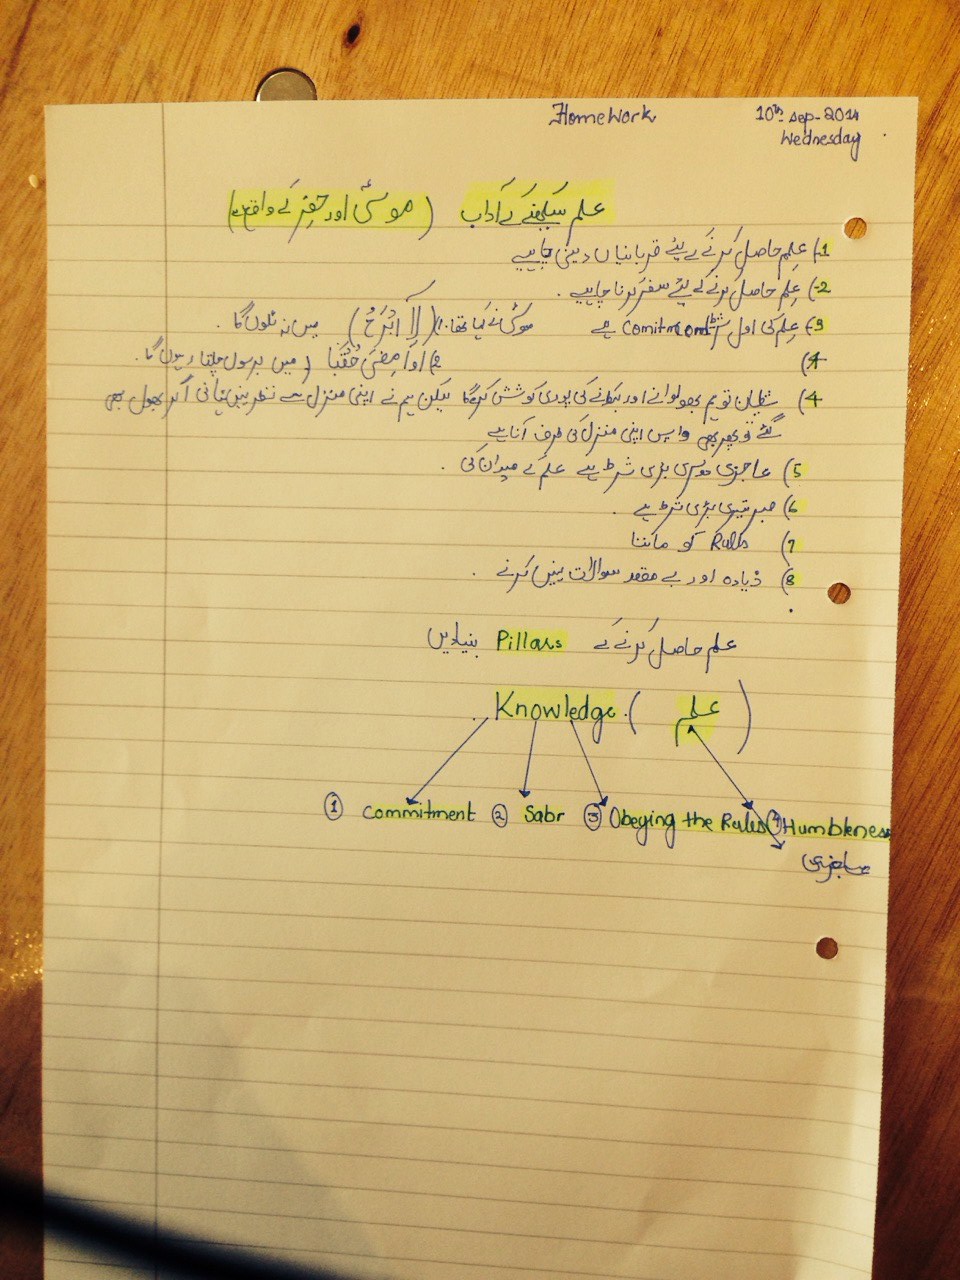 HomeWork
10th sep-2014
Wednesday
علم سیکھنے کے آداب (موسیٰؑ اور خضر کے واقع سے)
1) علم حاصل کرنے کے لیئے قربانیاں دینی چاہیے
2) علم حاصل کرنے کے لیئے سفر کرنا چاہیے.
3) علم کی اول شرط Comitment ہے موسیٰؑ نے کہا تھا: 1) (لَآ اَبْرَحُ) میں نہ ٹلوں گا.
4) 2) اَوْ اَمْضِیَ حُقُبًا (میں برسوں چلتا رہوں گا.
4) شیطان تو ہم بھولوانے اور بہکانے کی پوری کوشش کرےگا لیکن ہم نے اپنی منزل سے نظر نہیں ہٹانی اگر بھول بھی
گئے تو پھر بھی واپس اپنی منزل کی طرف آنا ہے
5) عاجزی دوسری بڑی شرط ہے علم کے میدان کی.
6) صبر تیسری بڑی شرط ہے.
7) Rulls کو ماننا
8) ذیادہ اور بے مقصد سوالات نہیں کرنے.
علم حاصل کرنے کے Pillars بنیادیں
Knowledge. (علم)
① Commitment ② Sabr ③ Obeying the Rules ④ Humbleness
عاجزی